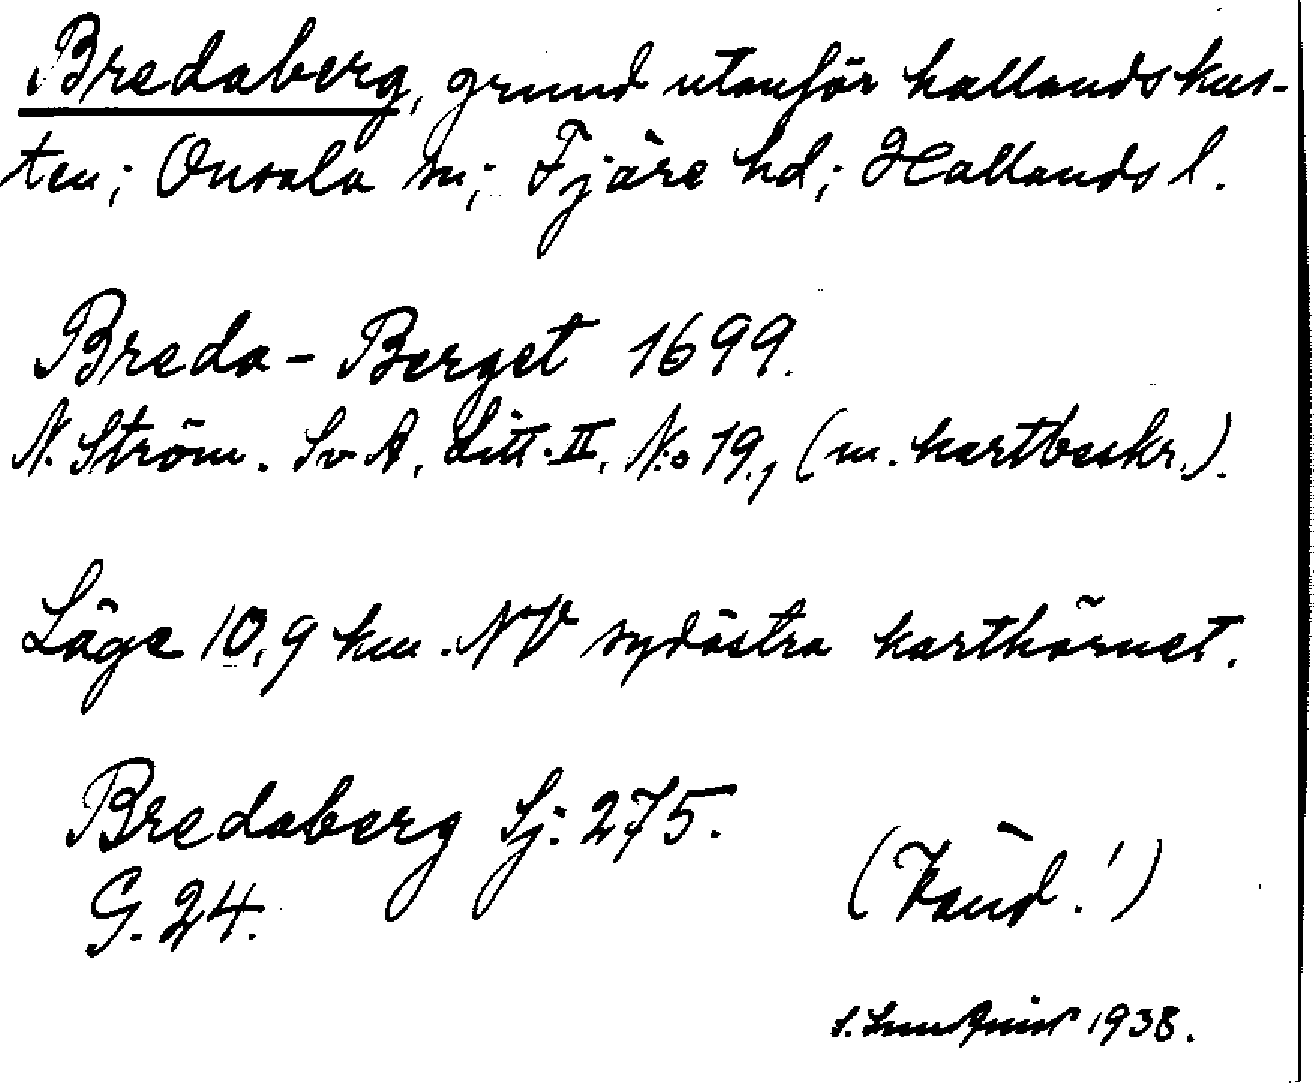 Bredaberg, grund utanför hallandskus-
ten; Onsala sn; Fjäre hd; Hallands l.
Breda-Berget 1699.
N. Ström. SvA. Litt. II. N:o 19., (m. kartbeskr.).
Läge 10,9 km. NV sydöstra karthörnet.
Bredaberg Sj: 275.
G. 24.
(Känd!)
1938.